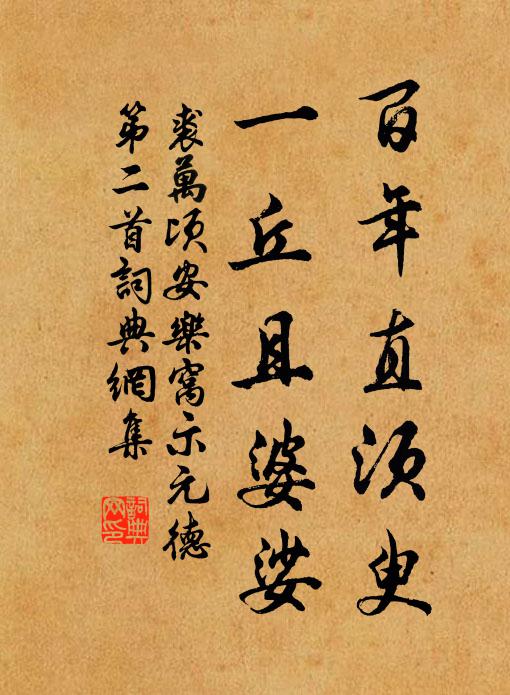 百年直須臾
一丘且婆娑
裘萬頃安樂窩示元德
第二首詞典網集
詞典
網印